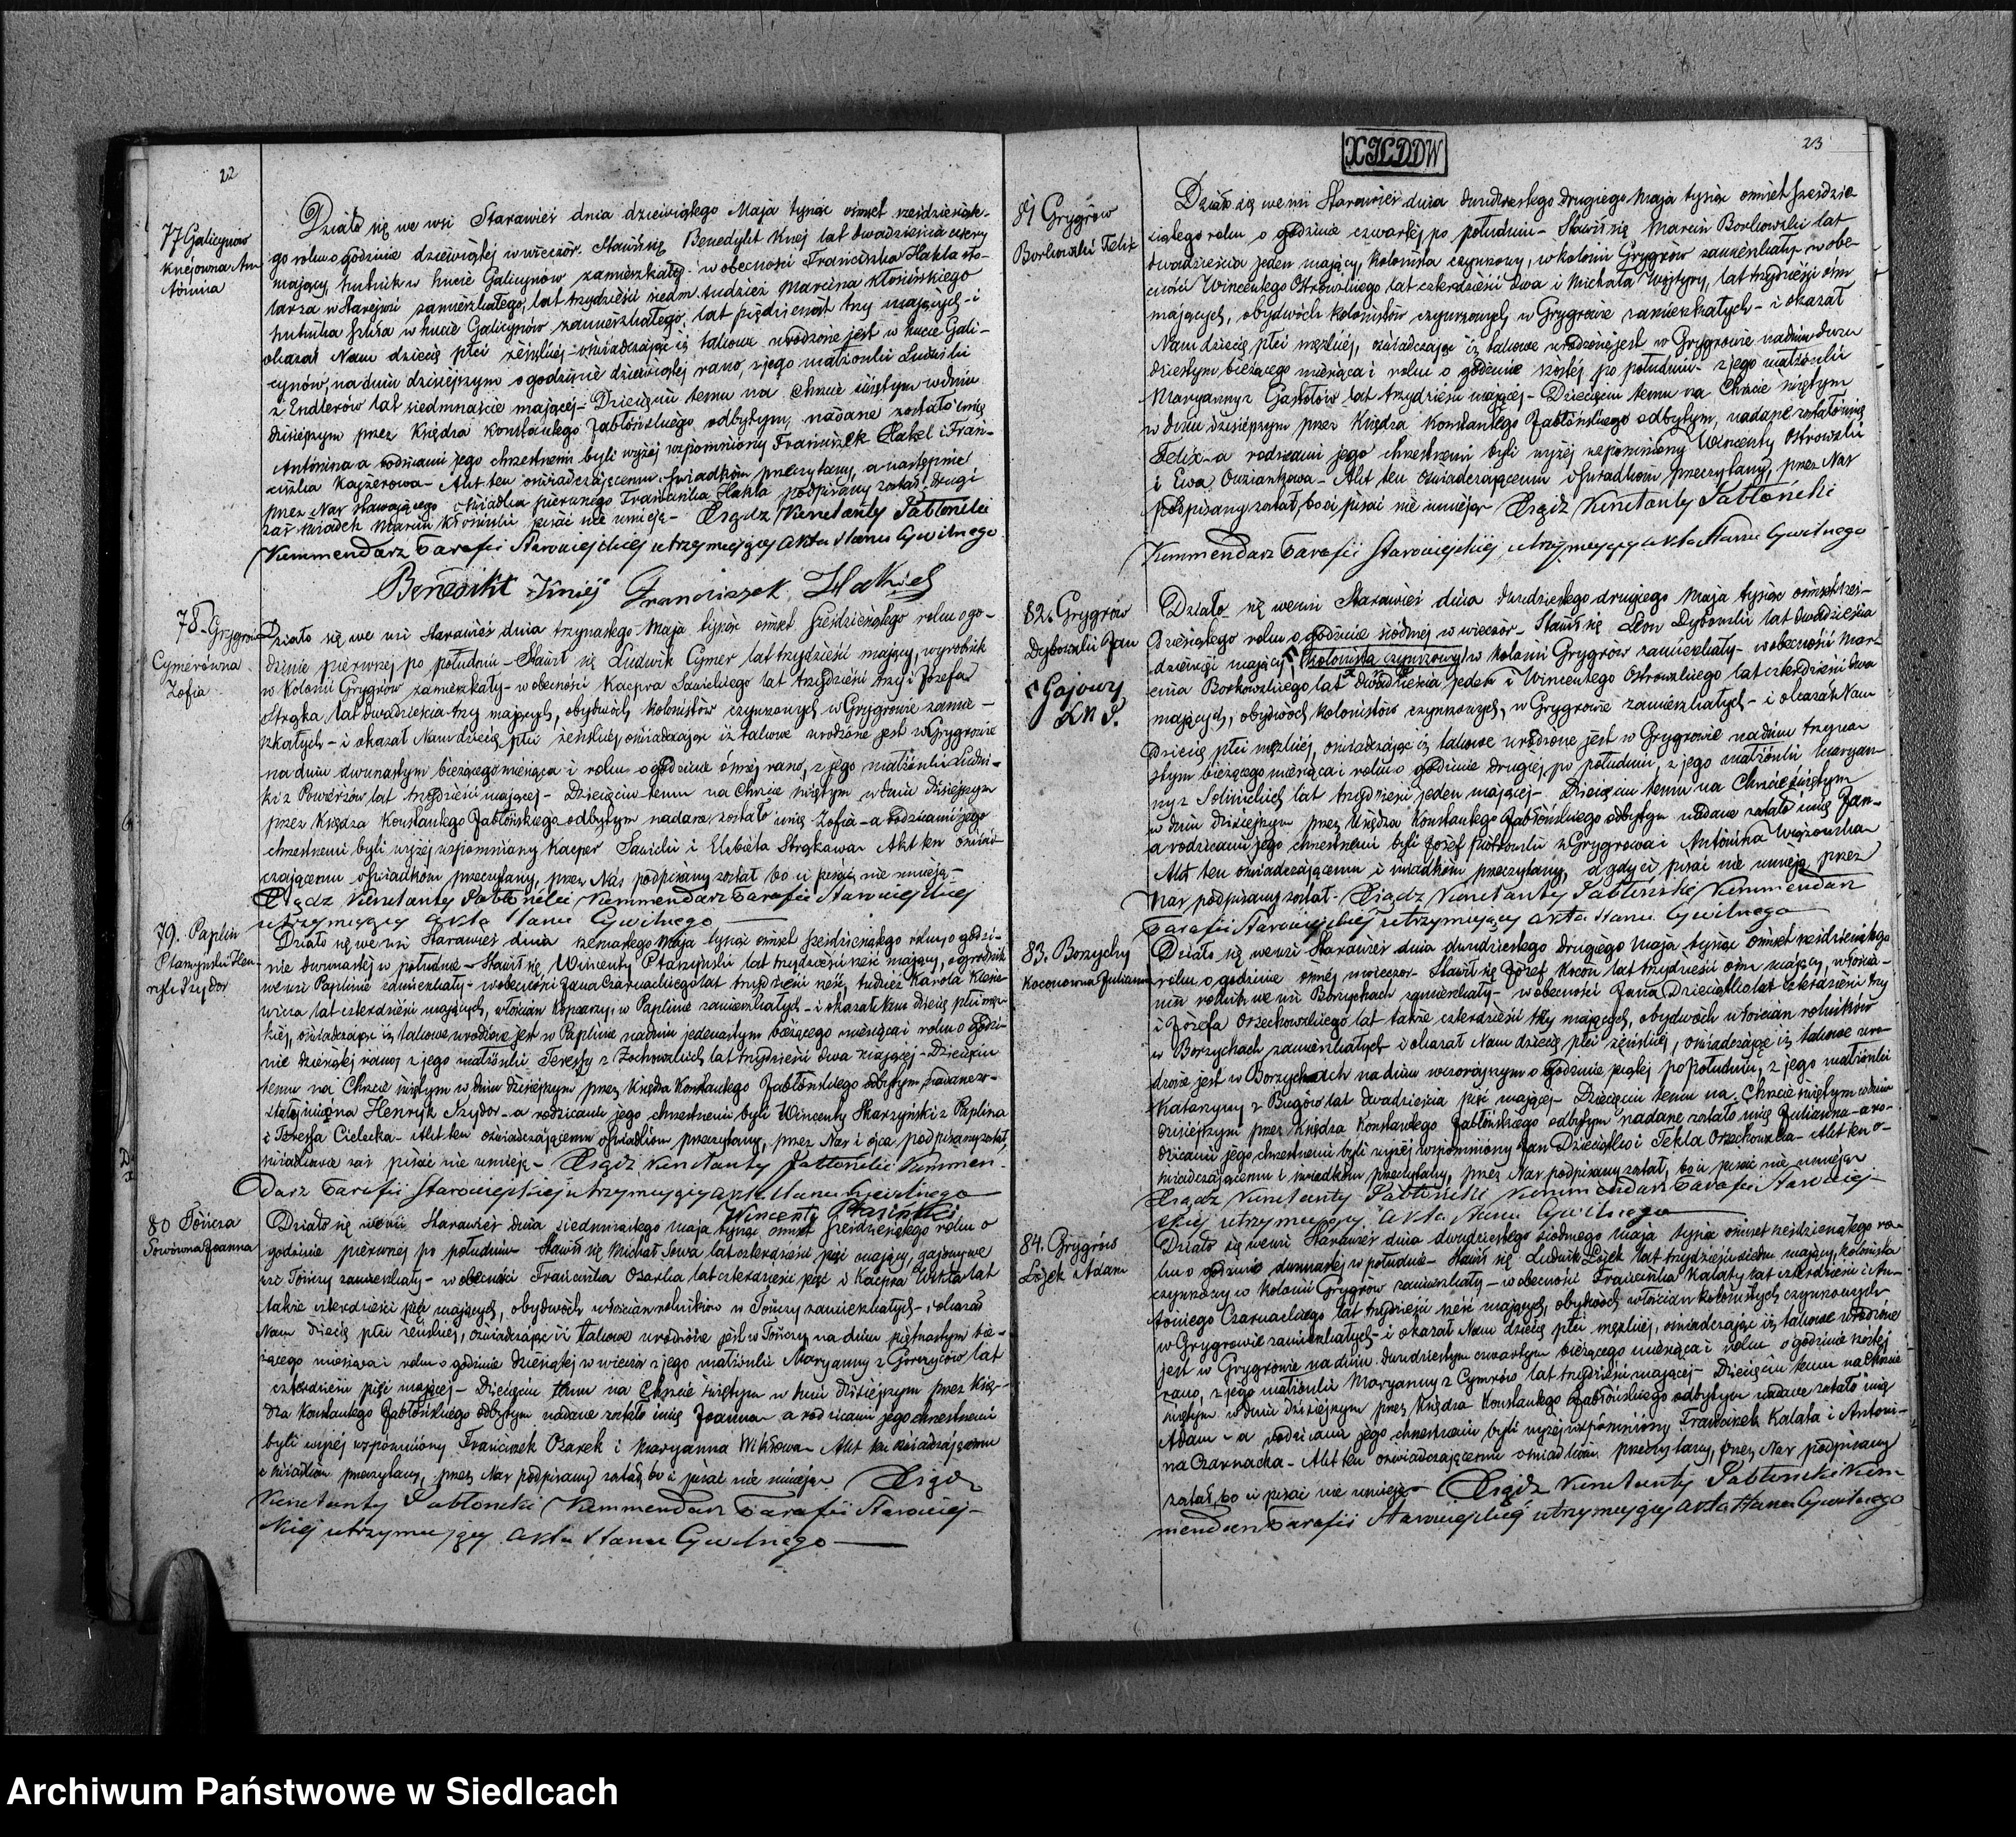 22
77 Galicynów
Knejówna An
tónina
Działo się we wsi Starawieś dnia dziewiątego Maja tysiąc ośmset sześdziesiąte-
go roku o godzinie dziewiątéj wwieczór. Stawił się Benedykt Knej lat dwadzieścia cztery
mający hutnik w hucie Galicynów zamieszkały w obecności Franciszka Hakla sto-
larza w Starejwsi zamieszkałego, lat trzydzieści siedm tudzież Marcina Kłosińskiego
hutnika szkła w hucie Galicynów zamieszkałego, lat pięćdziesiąt trzy mających - i
okazał Nam dziecię płci żeńskiéj - oświadczając iż takowe urodzone jest w hucie Gali-
cynów, na dniu dzisiejszym o godzinie dziewiątéj rano, z jego małżonki Ludwiki
z Endlerów lat siedmnaście mającéj - Dziecięciu temu na Chrzcie świętym w dniu
dzisiejszym przez Księdza Konstantego Jabłońskiego odbytym, nadane zostało imię
Antónina a rodzicami jego chrzestnemi byli wyżéj wspomniony Franciszek Hakel i Fran-
ciszka Kajzerowa - Akt ten oświadczającemu i świadkom przeczytany, a następnie
przez Nas stawającego i świadka pierwszego Franciszka Hakla podpisany został. Drugi
zaś świadek Marcin Kłosiński pisać nie umieją - Xiądz Konstanty Jabłoński
Kommendarz Parafii Starowiejskiéj utrzymujący Akta Stanu Cywilnego
Benedikt Kniej Franciszek Hakiel
78. Grygrów
Cymerówna
Zofia
Działo się we wsi Starawieś dnia trzynastego Maja tysiąc ośmset sześdziesiątego roku o go-
dzinie piérwszéj po południu - Stawił się Ludwik Cymer lat trzydzieści mający, wyrobnik
w Kolonii Grygrów zamieszkały - w obecności Kacpra Sawickiego lat trzydzieści trzy i Józefa
Strąka lat dwadzieścia trzy mających, obydwóch kolonistów czynszowych w Grygrowie zamie-
szkałych - i okazał Nam dziecię płci żeńskiéj, oświadczając iż takowe urodzone jest w Grygrowie
na dniu dwunastym bieżącego miesiąca i roku o godzinie ósméj rano, z jego małżonki Ludwi-
ki z lat trzydzieści mającéj - Dziecięciu temu na Chrzcie świętym w dniu dzisiejszym
przez Księdza Konstantego Jabłońskiego odbytym nadane zostało imię Zofia - a rodzicami jego
chrzestnemi byli wyżéj wspomniany Kacper Sawicki i Elżbieta Strąkowa - Akt ten oświad-
czającemu i świadkom przeczytany, przez Nas podpisany został bo ci pisać nie umieją -
Xiądz Konstanty Jabłoński Kommendarz Parafii Starowiejskiéj
utrzymujący Akta Stanu Cywilnego
79. Paplin
Ptaszyński Hen-
ryk Izydor
Działo się we wsi Starawieś dnia szesnastego Maja tysiąc ośmset sześdziesiątego roku o godzi-
nie dwunastéj w południe - Stawił się Wincenty Ptaszyński lat trzydzieści sześć mający, ogrodnik
we wsi Paplinie zamieszkały - w obecności Jana Czarnackiego lat trzydzieści sześć, tudzież Karola Klesie-
wicza lat czterdzieści mających, włościan kopczarzy, w Paplinie zamieszkałych - i okazał Nam dziecię płci męz-
kiéj, oświadczając iż takowe urodzone jest w Paplinie na dniu jedenastym bieżącego miesiąca i roku o godzi-
nie dziesiątéj rano, z jego małżonki Teressy z Żochowskich lat trzydzieści dwa mającéj - Dziecięciu
temu na Chrzcie świętym w dniu dzisiejszym przez Księdza Konstantego Jabłońskiego odbytym, nadane zo-
stały imiona Henryk Izydor - a rodzicami jego chrzestnemi byli Wincenty Skarzyński z Paplina
i Teressa Cielecka - Akt ten oświadczającemu i świadkom przeczytany, przez Nas i ojca podpisany został,
świadkowie zaś pisać nie umieją - Xiądz Konstanty Jabłoński Kommen-
darz Parafii Starowiejskiéj utrzymujący Akta Stanu Cywilnego
Wincenty Ptasiński
80 Tończa
Sowówna Joanna
Działo się we wsi Starawieś dnia siedmnastego maja tysiąc ośmset sześdziesiątego roku o
godzinie piérwszéj po południu - Stawił się Michał Sowa lat czterdzieści pięć mający, gajowy we
wsi Tończy zamieszkały - w obecności Franciszka Osarka lat czterdzieści pięć i Kacpra Wikło lat
także czterdzieści pięć mających, obydwóch włościan rolników w Tończy zamieszkałych - i okazał
Nam dziecię płci żeńskiéj, oświadczając iż takowe urodzone jest w Tończy na dniu piętnastym bie-
żącego miesiąca i roku o godzinie dziesiątéj w wieczór z jego małżonki Maryanny z Gorczyców lat
czterdzieści pięć mającéj - Dziecięciu temu na Chrzcie świętym w dniu dzisiejszym przez Księ-
dza Konstantego Jabłońskiego odbytym nadane zostało imię Joanna - a rodzicami jego chrzestnemi
byli wyżéj wspomniony Franciszek Osarek i Maryanna Wikłowa - Akt ten oświadczającemu
i świadkom przeczytany, przez Nas podpisany został, bo ci pisać nie umieją - Xiądz
Konstanty Jabłoński Kommendarz Parafii Starowiej-
skiéj utrzymujący Akta Stanu Cywilnego
XILDDW
23
81 Grygrów
Borkowski Felix
Działo się we wsi Starawieś dnia dwudziestego drugiego Maja tysiąc ośmset sześdzie-
siątego roku o godzinie czwartéj po południu - Stawił się Marcin Borkowski lat
dwadzieścia jeden mający, kolonista czynszowy, w kolonii Grygrów zamieszkały - w obe-
cności Wincentego Ostrowskiego lat czterdzieści dwa i Michała Wojtyry, lat trzydzieści ośm
mających, obydwóch kolonistów czynszowych w Grygrowie zamieszkałych - i okazał
Nam dziecię płci męzkiéj, oświadczając iż takowe urodzone jest w Grygrowie na dniu dwu-
dziestym bieżącego miesiąca i roku o godzinie szóstéj po południu - z jego małżonki
Maryanny z Gasołów lat trzydzieści mającéj - Dziecięciu temu na Chrzcie świętym
w dniu dzisiejszym przez Księdza Konstantego Jabłońskiego odbytym, nadane zostało imię
Felix - a rodzicami jego chrzestnemi byli wyżéj wspomniony Wincenty Ostrowski
i Ewa - Akt ten oświadczającemu i świadkom przeczytany, przez Nas
podpisany został, bo ci pisać nie umieją - Xiądz Konstanty Jabłoński
Kommendarz Parafii Starowiejskiéj utrzymujący Akta Stanu Cywilnego
82. Grygrów
Dybowski Jan
Gajowy
X K J.
Działo się we wsi Starawieś dnia dwudziestego drugiego Maja tysiąc ośmset sześ-
dziesiątego roku o godzinie siódméj w wieczór - Stawił się Leon Dybowski lat dwadzieścia
dziewięć mający, kolonista czynszowy w kolonii Grygrów zamieszkały - w obecności Mar-
cina Borkowskiego lat dwadzieścia jeden i Wincentego Ostrowskiego lat czterdzieści dwa
mających, obydwóch kolonistów czynszowych, w Grygrowie zamieszkałych - i okazał Nam
dziecię płci męzkiéj, oświadczając iż takowe urodzone jest w Grygrowie na dniu trzyna-
stym bieżącego miesiąca i roku o godzinie drugiéj po południu, z jego małżonki Maryan-
ny z lat trzydzieści jeden mającéj - Dziecięciu temu na Chrzcie świętym
w dniu dzisiejszym przez Księdza Konstantego Jabłońskiego odbytym nadane zostało imię Jan -
a rodzicami jego chrzestnemi byli Józef Piotrowski z Grygrowa i Antónina
Akt ten oświadczającemu i świadkom przeczytany, a gdy ci pisać nie umieją przez
Nas podpisany został - Xiądz Konstanty Jabłoński Kommendarz
Parafii Starowiejskiéj utrzymujący Akta Stanu Cywilnego
83. Borzychy
Koconówna Julianna
Działo się we wsi Starawieś dnia dwudziestego drugiego Maja tysiąc ośmset sześdziesiątego
roku o godzinie ósméj wwieczor - Stawił się Józef Kocon lat trzydzieści ośm mający, włościa-
nin rolnik, we wsi Borzychach zamieszkały - w obecności Jana Dzięciołka lat czterdzieści trzy
i Józefa Orzechowskiego lat także czterdzieści trzy mających, obydwóch włościan rolników
w Borzychach zamieszkałych - i okazał Nam dziecię płci żeńskiéj, oświadczając iż takowe uro-
dzone jest w Borzychach na dniu wczorajszym o godzinie piątéj po południu, z jego małżonki
Katarzyny z Bugów lat dwadzieścia pięć mającéj - Dziecięciu temu na Chrzcie świętym w dniu
dzisiejszym przez Księdza Konstantego Jabłońskiego odbytym nadane zostało imię Julianna - a ro-
dzicami jego chrzestnemi byli wyżéj wspomniony Jan i Tekla Orzechowska - Akt ten o-
świadczającemu i świadkom przeczytany, przez Nas podpisany został, bo ci pisać nie umieją
Xiądz Konstanty Jabłoński Kommendarz Parafii Starowiej-
skiéj utrzymujący Akta Stanu Cywilnego
84. Grygrów
Łojek Adam
Działo się we wsi Starawieś dnia dwudziestego siódmego Maja tysiąc ośmset sześdziesiątego ro-
ku o godzinie dwunastéj w południe - Stawił się Ludwik Łojek lat trzydzieści siedm mający, kolonista
czynszowy w kolonii Grygrów zamieszkały - w obecności Franciszka Kałaty lat czterdzieści i An-
toniego Czarnackiego lat trzydzieści sześć mających, obydwóch włościan kolonistych czynszowych
w Grygrowie zamieszkałych - i okazał Nam dziecię płci męzkiéj, oświadczając iż takowe urodzone
jest w Grygrowie na dniu dwudziestym czwartym bieżącego miesiąca i roku o godzinie szóstéj
rano, z jego małżonki Maryanny z Cymrów lat trzydzieści mającéj - Dziecięciu temu na Chrzcie
świętym w dniu dzisiejszym przez Księdza Konstantego Jabłońskiego odbytym nadane zostało imię
Adam - a rodzicami jego chrzestnemi byli wyżéj wspomniony Franciszek Kałata i Antoni-
na Czarnacka - Akt ten oświadczającemu i świadkom przeczytany, przez Nas podpisany
został, bo ci pisać nie umieją - Xiądz Konstanty Jabłoński Kom-
mendarz Parafii Starowiejskiéj utrzymujący Akta Stanu Cywilnego
Archiwum Państwowe w Siedlcach